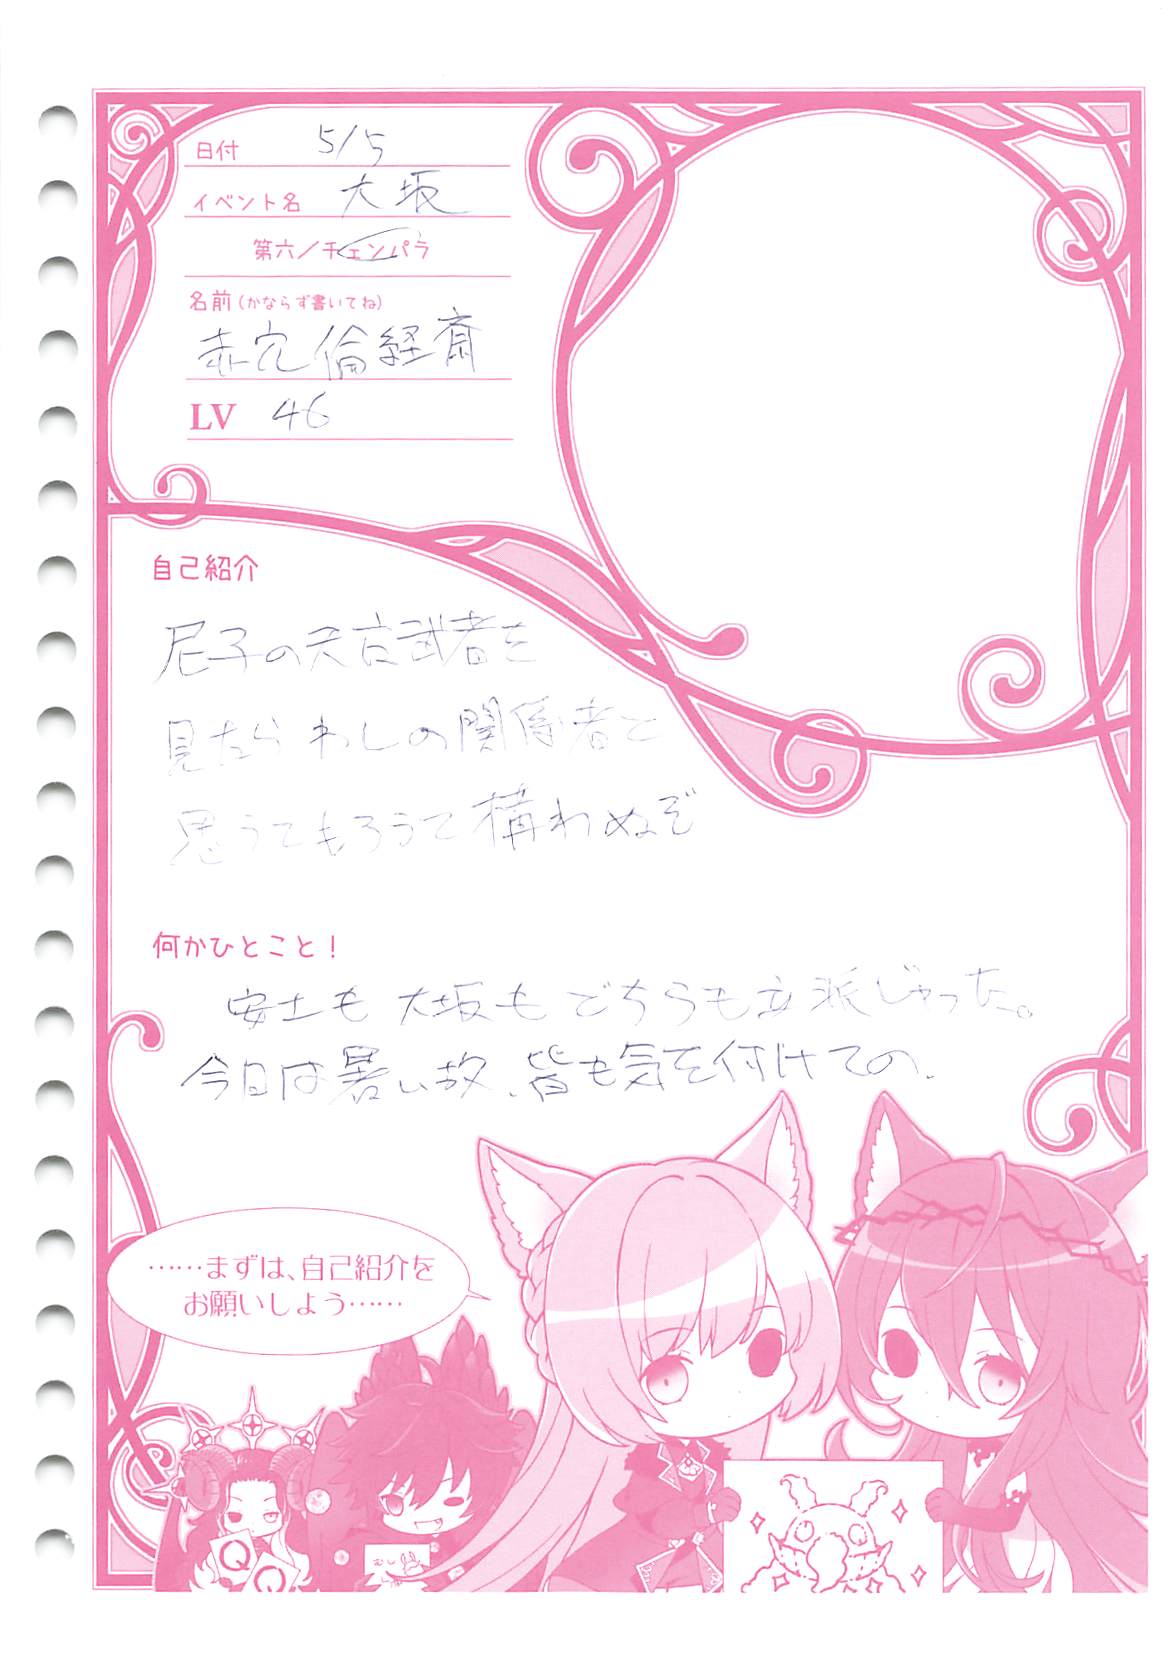 日付 5/5
イベント名 大坂
第六/チェンパラ
名前(かならず書いてね)
赤穴倫経斎
LV 46
自己紹介
尼子の天守武者を
見たらわしの関係者と
思うてもろうて構わぬぞ
何かひとこと!
安土も大坂もどちらも立派じゃった。
今日は暑い故、皆も気を付けての。
……まずは、自己紹介を
お願いしよう……
Q Q
むし